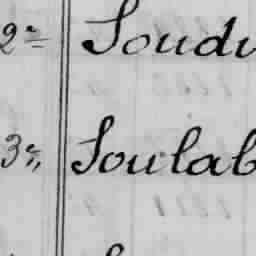 2º Soudu
3º Soulab